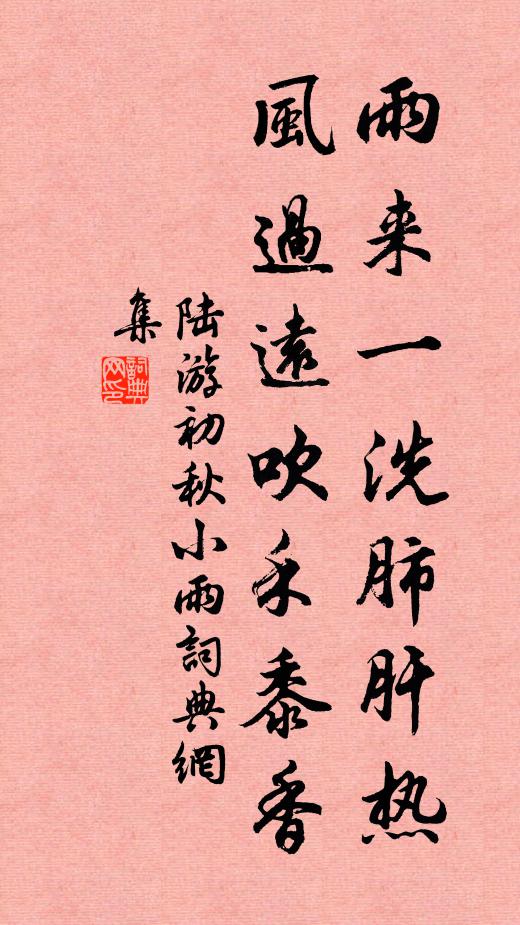 雨来一洗肺肝热
風過遠吹禾黍香
陆游初秋小雨詞典網
集
詞典网印